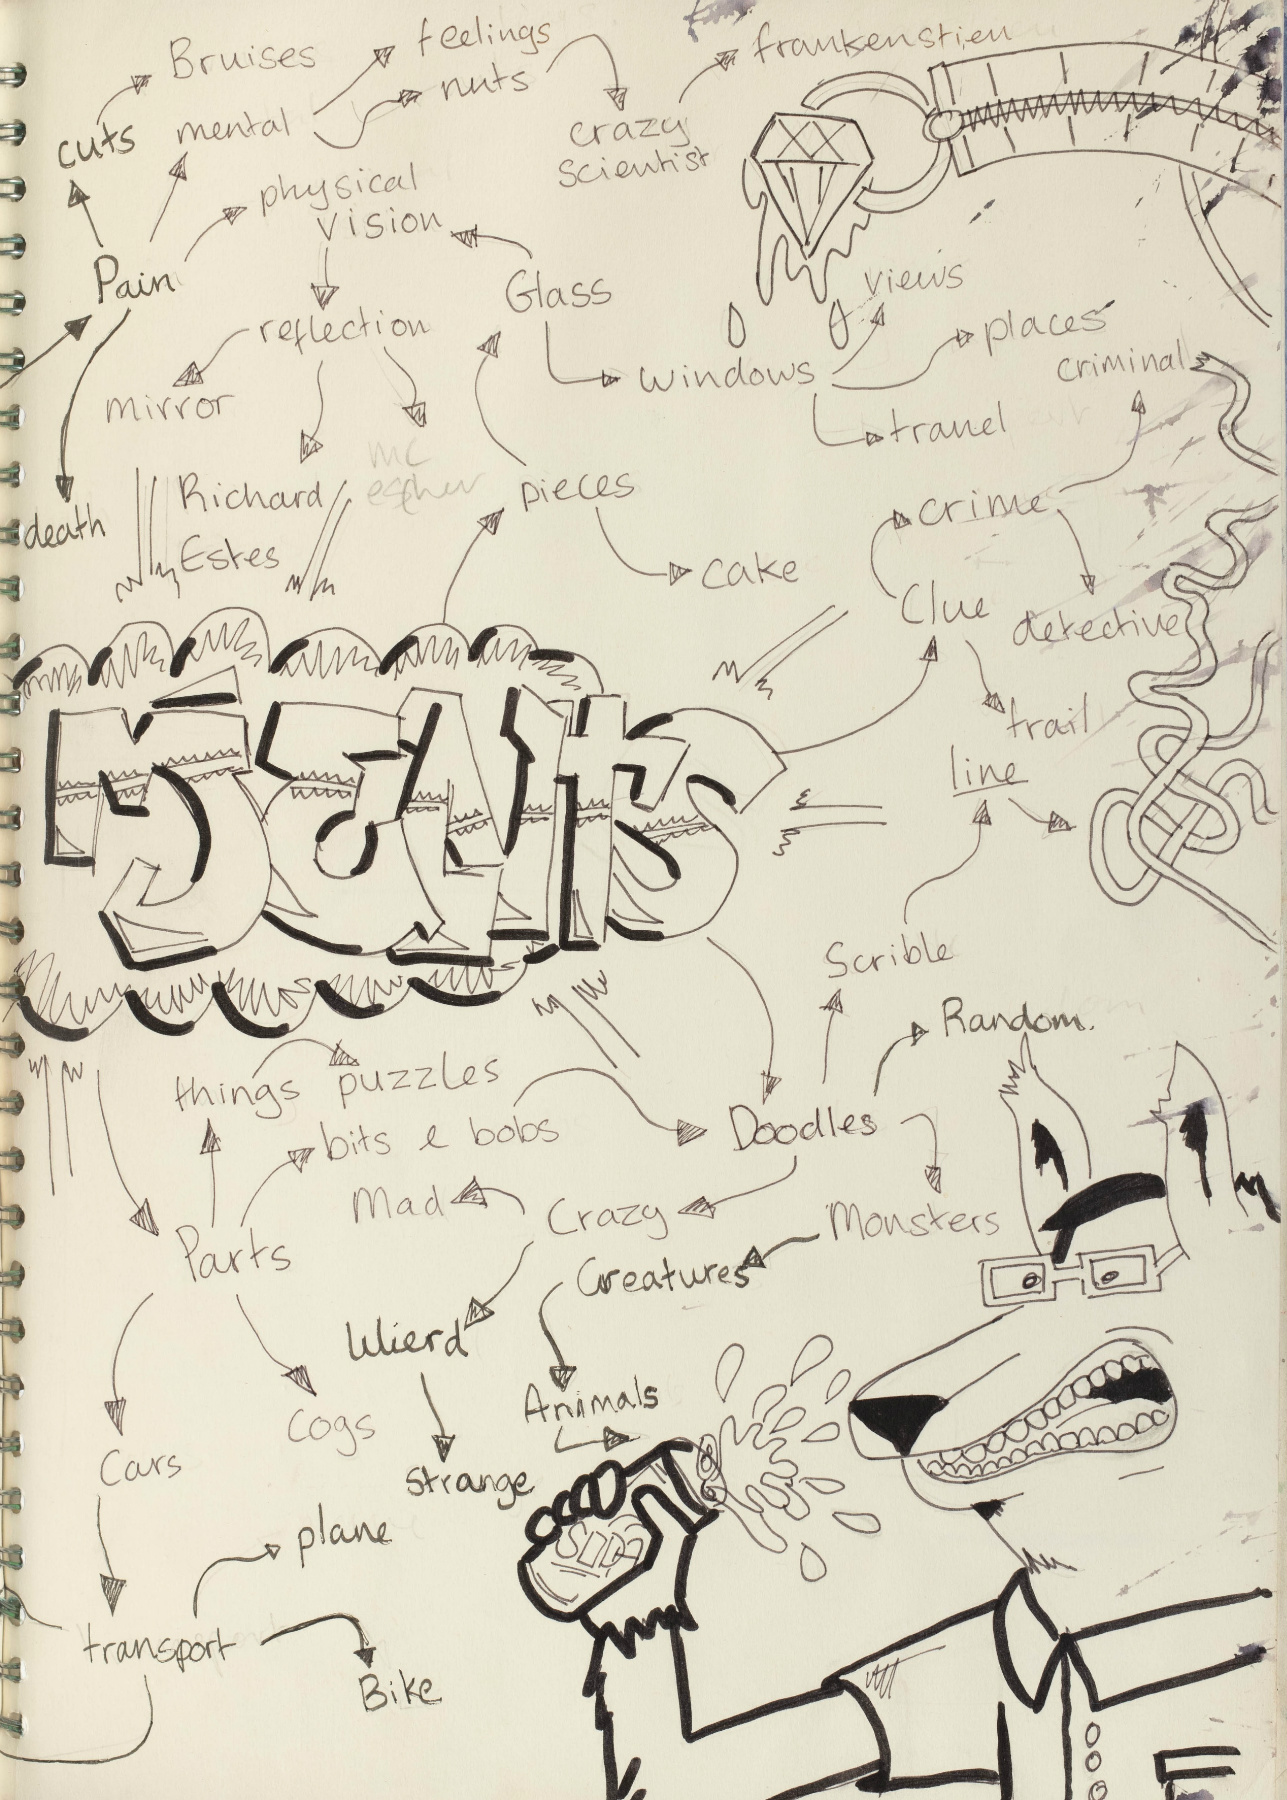 Bruises
feelings
nuts
frankenstien
cuts
mental
crazy
scientist
physical
vision
Pain
Glass
views
reflection
places
windows
criminal
mirror
travel
mc
escher
Richard
Estes
pieces
crime
death
cake
Clue
detective
trail
MeNtS
line
Scrible
Random.
things
puzzles
bits & bobs
Doodles
Mad
Crazy
Monsters
Parts
Creatures
Wierd
Animals
Cogs
Cars
Strange
SODA
plane
transport
Bike